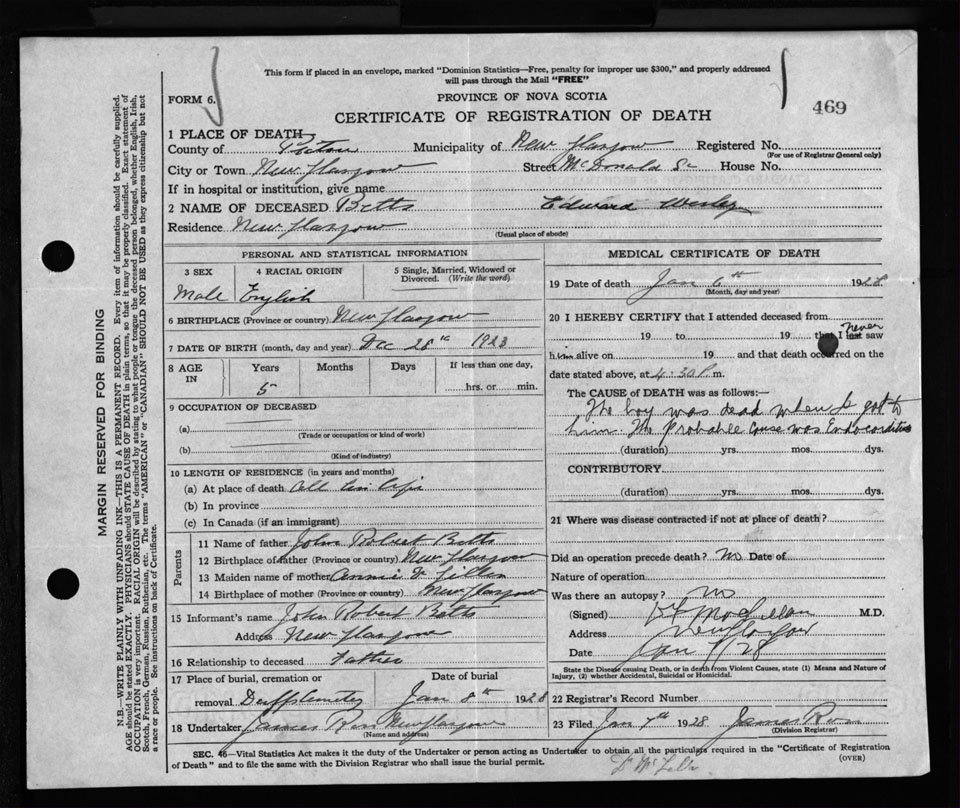 This form if placed in an envelope, marked "Dominion Statistics—Free, penalty for improper use $300," and properly addressed
will pass through the Mail "FREE"
FORM 6.
PROVINCE OF NOVA SCOTIA
469
CERTIFICATE OF REGISTRATION OF DEATH
1 PLACE OF DEATH
County of Pictou Municipality of New Glasgow Registered No.
(For use of Registrar General only)
City or Town New Glasgow Street McDonald St House No.
If in hospital or institution, give name
2 NAME OF DECEASED Betts Edward Wesley
Residence New Glasgow
(Usual place of abode)
PERSONAL AND STATISTICAL INFORMATION
3 SEX 4 RACIAL ORIGIN 5 Single, Married, Widowed or
Divorced. (Write the word)
Male English
6 BIRTHPLACE (Province or country) New Glasgow
7 DATE OF BIRTH (month, day and year) Dec 28th 1923
8 AGE IN Years Months Days If less than one day,
5 hrs. or min.
9 OCCUPATION OF DECEASED
(a)
(Trade or occupation or kind of work)
(b)
(Kind of industry)
10 LENGTH OF RESIDENCE (in years and months)
(a) At place of death all his life
(b) In province
(c) In Canada (if an immigrant)
Parents
11 Name of father John Robert Betts
12 Birthplace of father (Province or country) New Glasgow
13 Maiden name of mother Annie
14 Birthplace of mother (Province or country) New Glasgow
15 Informant's name John Robert Betts
Address New Glasgow
16 Relationship to deceased Father
17 Place of burial, cremation or Date of burial
removal Jan 8th 1928
18 Undertaker James New Glasgow
(Name and address)
MEDICAL CERTIFICATE OF DEATH
19 Date of death Jan 6th 1928
(Month, day and year)
20 I HEREBY CERTIFY that I attended deceased from
19 to 19 that I last never saw
him alive on 19 and that death occurred on the
date stated above, at 4.30 P m.
The CAUSE OF DEATH was as follows:—
The boy was dead when I got to
him. The Probable Cause was Endocarditis
(duration) yrs. mos. dys.
CONTRIBUTORY
(duration) yrs. mos. dys.
21 Where was disease contracted if not at place of death?
Did an operation precede death? No Date of
Nature of operation
Was there an autopsy? No
(Signed) McLellan M.D.
Address New Glasgow
Date Jan 7/28
State the Disease causing Death, or in death from Violent Causes, state (1) Means and Nature of
Injury, (2) whether Accidental, Suicidal or Homicidal.
22 Registrar's Record Number
23 Filed Jan 7th 1928 James
(Division Registrar)
SEC. 46—Vital Statistics Act makes it the duty of the Undertaker or person acting as Undertaker to obtain all the particulars required in the "Certificate of Registration
of Death" and to file the same with the Division Registrar who shall issue the burial permit.
(OVER)
MARGIN RESERVED FOR BINDING
N.B.—WRITE PLAINLY WITH UNFADING INK—THIS IS A PERMANENT RECORD. Every item of information should be carefully supplied.
AGE should be stated EXACTLY. PHYSICIANS should STATE CAUSE OF DEATH in plain terms, so that it may be properly classified. Exact statement of
OCCUPATION is very important. RACIAL ORIGIN will be described by stating to what people or tongue the deceased person belonged, whether English, Irish,
Scotch, French, German, Russian, Ruthenian, etc. The terms "AMERICAN" or "CANADIAN" SHOULD NOT BE USED as they express citizenship but not
a race or people. See instructions on back of Certificate.